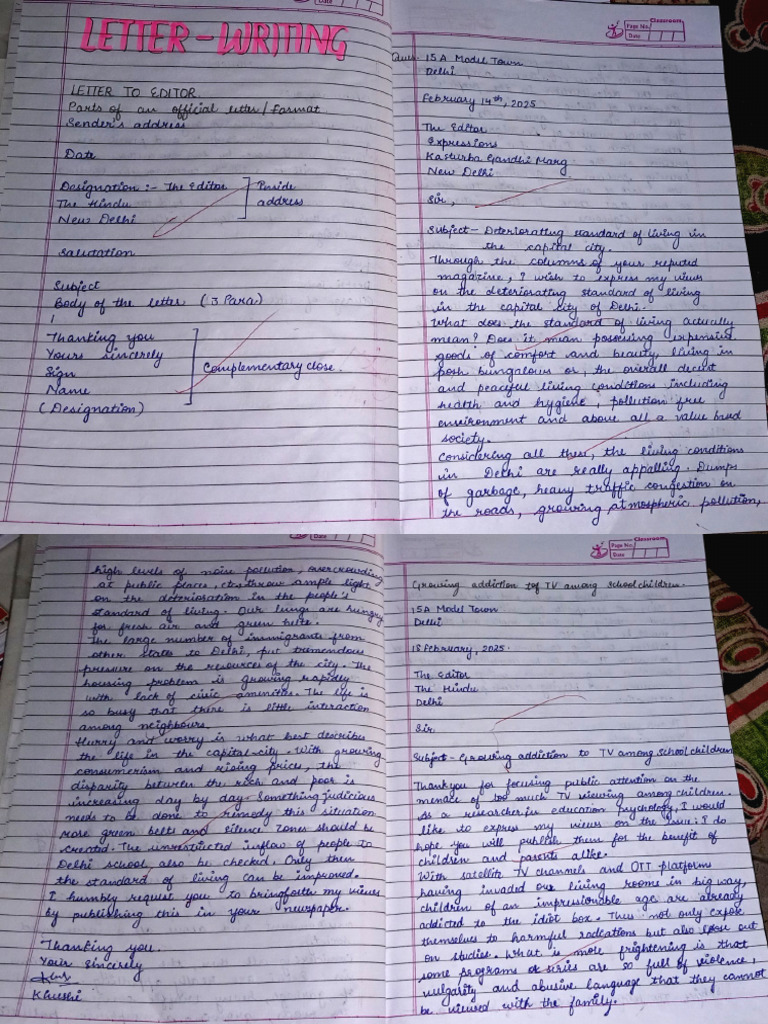 Date
LETTER-WRITING
LETTER TO EDITOR.
Parts of an official letter / Format
Sender's address
Date
Designation :- The Editor
The Hindu
New Delhi
Inside
address
Salutation
Subject
Body of the letter (3 Para)
Thanking you
Yours sincerely
Sign
Name
(Designation)
Complementary close.
Classroom
Page No.
Date
Ques. 15A Model Town
Delhi
February 14th, 2025
The Editor
Expressions
Kasturba Gandhi Marg
New Delhi
Sir,
Subject - Deteriorating standard of living in
the capital city.
Through the columns of your reputed
magazine, I wish to express my views
on the deteriorating standard of living
in the capital city of Delhi.
What does the standard of living actually
mean? Does it mean possessing expensive
goods of comfort and beauty, living in
posh bungalows or, the overall decent
and peaceful living conditions including
health and hygiene, pollution free
environment and above all a value based
society.
Considering all these, the living conditions
in Delhi are really appalling. Dumps
of garbage, heavy traffic congestion on
the roads, growing atmospheric pollution,
high levels of noise pollution, overcrowding
at public places, etc. throw ample light
on the deterioration in the people's
standard of living. Our lungs are hungry
for fresh air and green belts.
The large number of immigrants from
other states to Delhi, put tremendous
pressure on the resources of the city. The
housing problem is growing rapidly
with lack of civic amenities. The life is
so busy that there is little interaction
among neighbours.
Hurry and worry is what best describes
the life in the capital city. With growing
consumerism and rising prices, the
disparity between the rich and poor is
increasing day by day. Something judicious
needs to be done to remedy this situation
More green belts and silence zones should be
created. The unrestricted inflow of people to
Delhi school also be checked. Only then
the standard of living can be improved.
I humbly request you to bringforth my views
by publishing this in your newspaper.
Thanking you.
Your Sincerely
Khushi
Date
Classroom
Page No.
Date
Growing addiction tof TV among school children.
15A Model Town
Delhi
18 February, 2025.
The Editor
The Hindu
Delhi
Sir
Subject - Growing addiction to TV among school children
Thankyou for focusing public attention on the
menace of too much TV viewing among children.
As a researcher in education psychology, I would
like to express my views on the issue. I do
hope you will publish them for the benefit of
children and parents alike.
With satellite TV channels and OTT platform
having invaded our living rooms in big way,
children of an impressionable age are already
addicted to the idiot box. Thus not only expose
themselves to harmful radiations but also lose out
on studies. What is more frightening is that
some programs or series are so full of violence,
vulgarity and abusive language that they cannot
be viewed with the family.